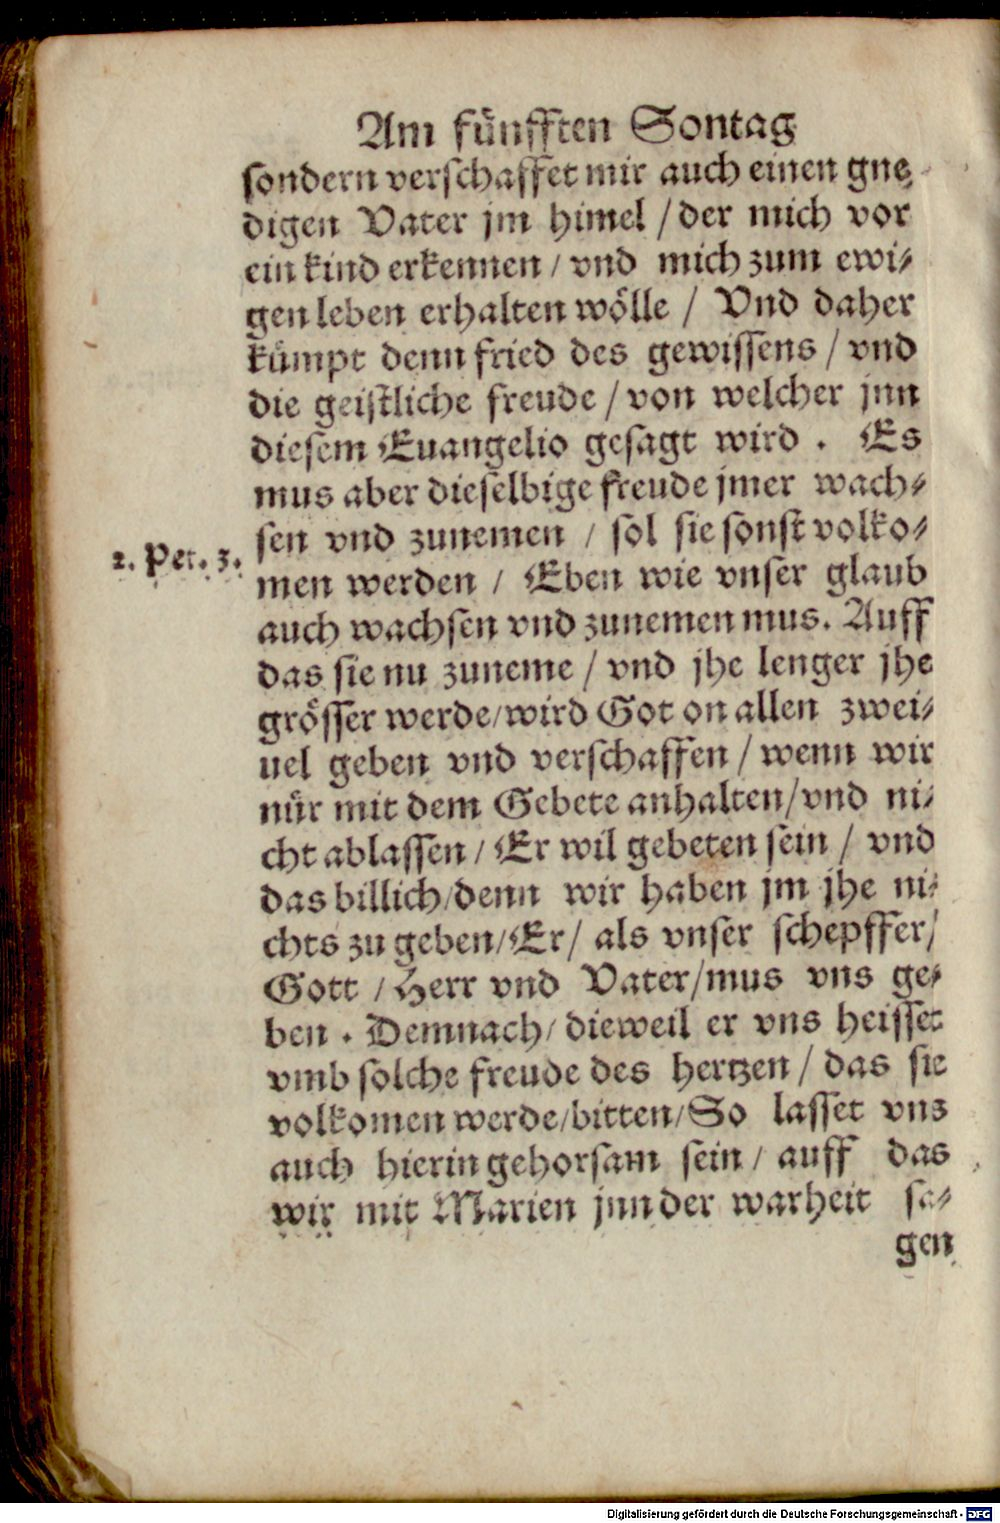 Am fünfften Sontag
sondern verschaffet mir auch einen gne-
digen Vater jm himel / der mich vor
ein kind erkennen / vnd mich zum ewi-
gen leben erhalten wölle / Vnd daher
kümpt denn fried des gewissens / vnd
die geistliche freude / von welcher jnn
diesem Euangelio gesagt wird . Es
mus aber dieselbige freude jmer wach-
2. Pet. 3.
sen vnd zunemen / sol sie sonst volko-
men werden / Eben wie vnser glaub
auch wachsen vnd zunemen mus. Auff
das sie nu zuneme / vnd jhe lenger jhe
grösser werde/wird Got on allen zwei-
uel geben vnd verschaffen / wenn wir
nür mit dem Gebete anhalten/vnd ni-
cht ablassen / Er wil gebeten sein / vnd
das billich/denn wir haben jm jhe ni-
chts zu geben/Er/ als vnser schepffer/
Gott / Herr vnd Vater/mus vns ge-
ben . Demnach/ dieweil er vns heisset
vmb solche freude des hertzen / das sie
volkomen werde/bitten/So lasset vns
auch hierin gehorsam sein / auff das
wir mit Marien jnn der warheit sa-
gen
Digitalisierung gefördert durch die Deutsche Forschungsgemeinschaft - DFG